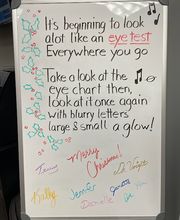 It's beginning to look
alot like an eye test
Everywhere you go
Take a look at the
eye chart then,
look at it once again
with blurry letters
large & small a glow!
Merry
Christmas!
Kathy
Jennifer
Danielle